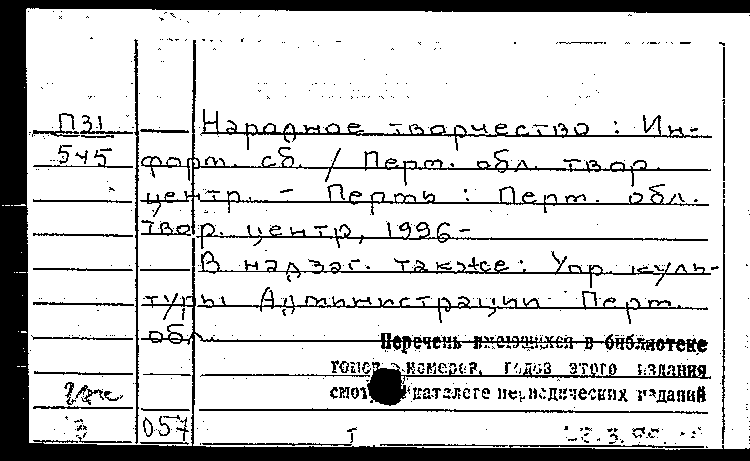 П31
545
Народное творчество : Ин-
форм. сб. / Перм. обл. твор.
центр. - Пермь : Перм. обл.
твор. центр, 1996-
В надзаг. также: Упр. куль-
туры Администрации Перм.
обл.
Перечень имеющихся в библиотеке
томов, номеров, годов этого издания
смотри каталоге периодических изданий
3 057 I